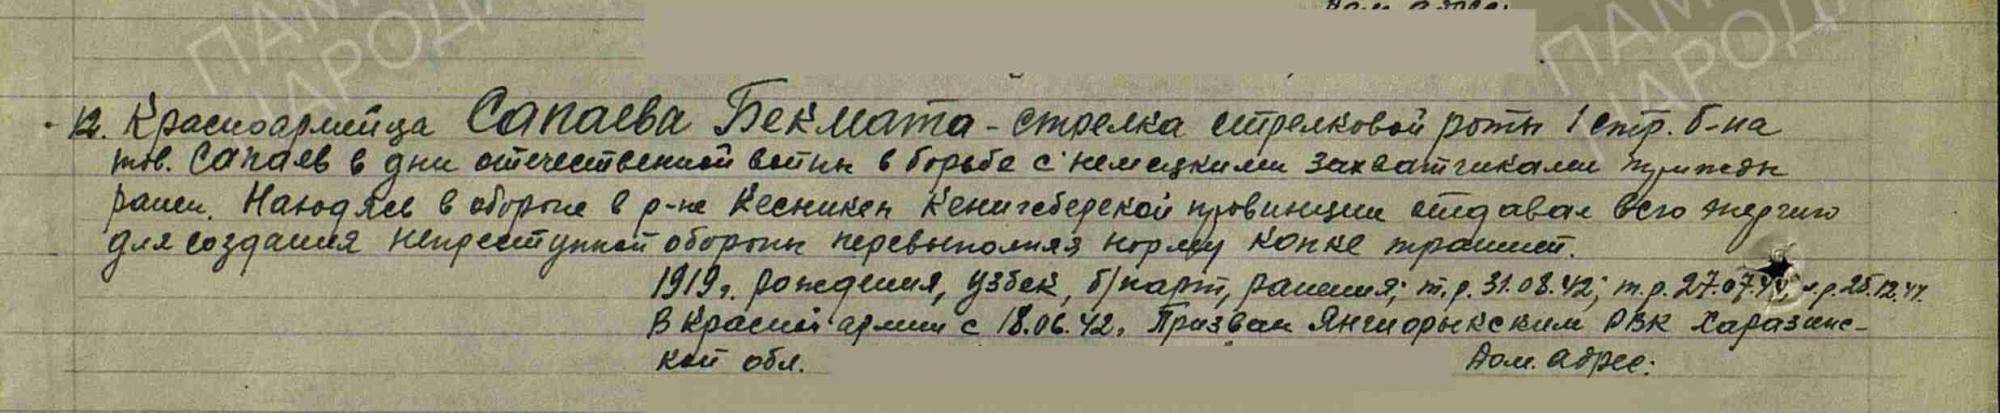 Дом. адрес:
12. Красноармейца Сапаева Бекмата - стрелка стрелковой роты 1 стр. б-на
тов. Сапаев в дни отечественной войны в борьбе с немецкими захватчиками трижды
ранен. Находясь в обороне в р-не Кесникен Кенигсбергской провинции отдавал всю энергию
для создания неприступной обороны перевыполняя норму копке траншей.
1919 г. рождения, узбек, б/парт, ранения; т.р. 31.08.42; т.р. 27.07.44, л.р. 25.12.44.
В Красной армии с 18.06.42. Призван Янгиорыкским РВК Харазинс-
кой обл. Дом. адрес: